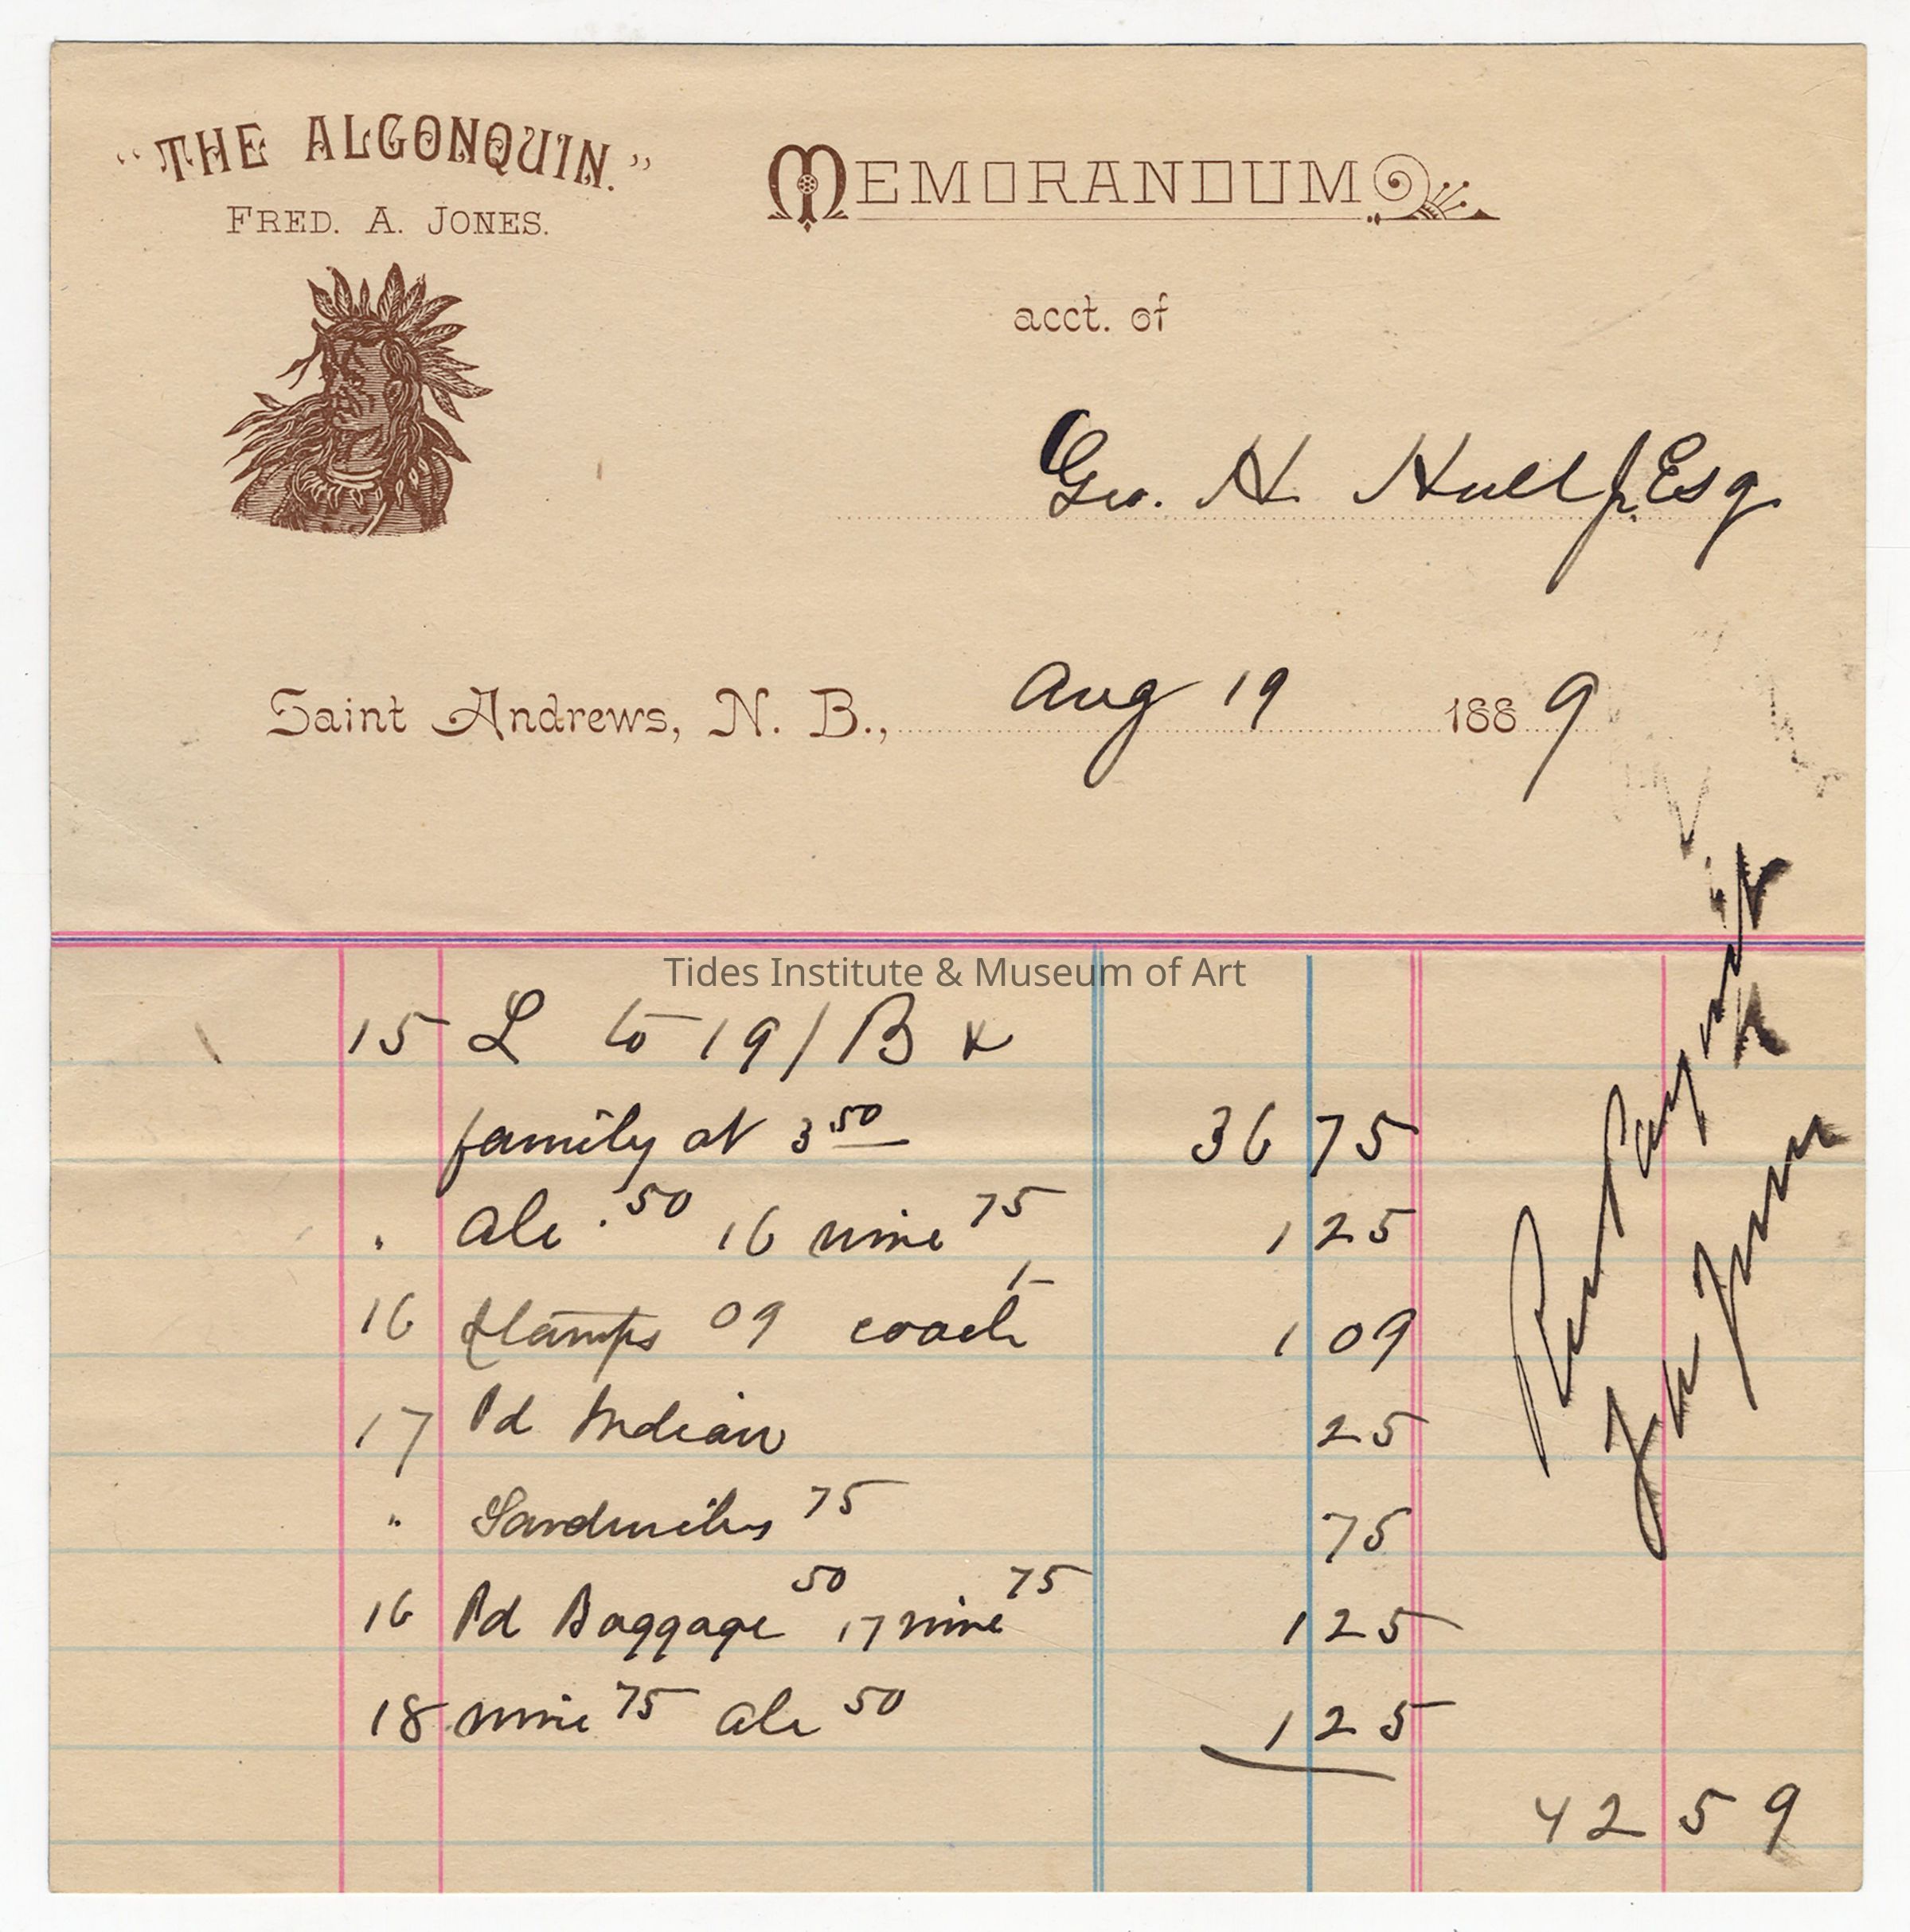 "THE ALGONQUIN."
FRED. A. JONES.
MEMORANDUM
acct. of
Geo. H Hull Jr. Esq
Saint Andrews, N. B., Aug 19 1889
Tides Institute & Museum of Art
15 L to 19/B &
family at 3.50 36 75
" Ale .50 16 wine 75 1 25
16 Stamps 09 coach 1- 1 09
17 Pd Indian 25
" Sandwiches 75 75
16 Pd Baggage 50 17 wine 75 1 25
18 wine 75 Ale 50 1 25
42 59